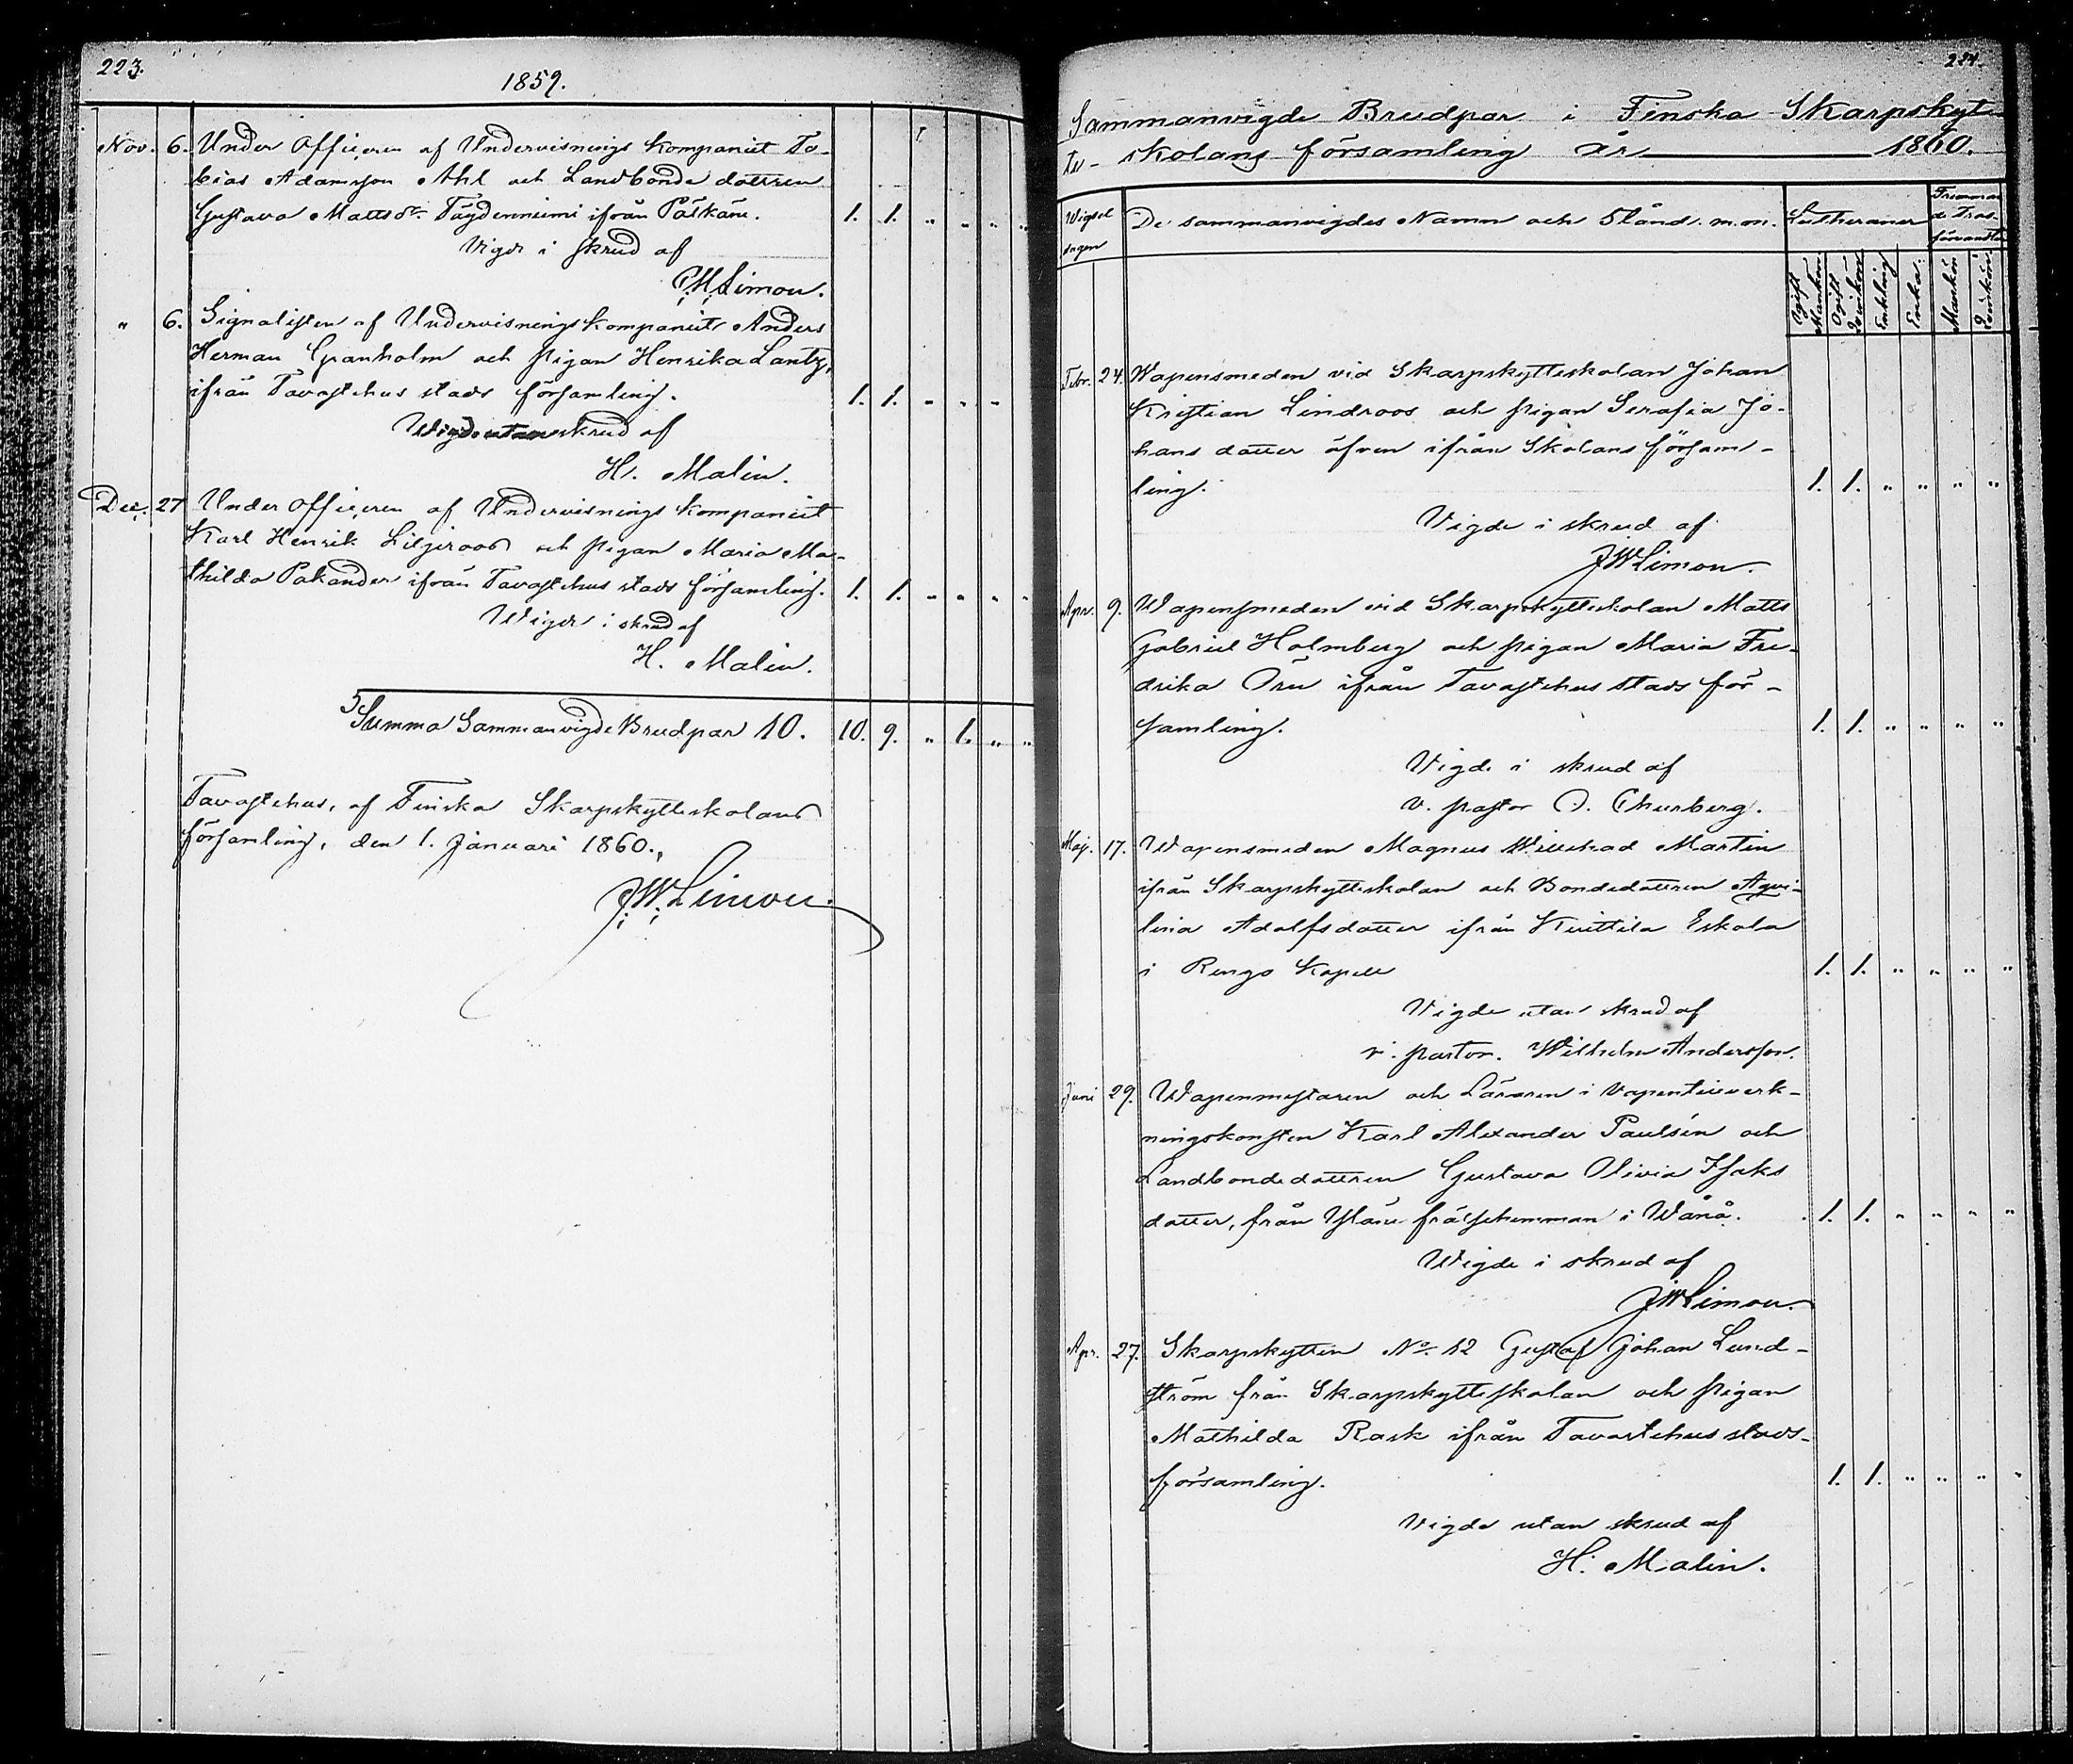 223.
1859.
Nov. 6. Under Officeren af Undervisnings Kompaniet To-
bias Adamsson Ahl och Landbonde dottren
Gustava Matts dr. Täydenniemi ifrån Pälkäne. 1. 1. " " " "
Vigde i skrud af
J.W. Limon.
" 6. Signalisten af Undervisnings Kompaniet Anders
Herman Granholm och pigan Henrika Lantz,
ifrån Tavastehus stads församling. 1. 1. " " "
Wigde utan skrud af
H. Malin.
Dec. 27 Under officeren af Undervisnings kompaniet
Karl Henrik Liljeroos och pigan Maria Ma-
thilda Pakander ifrån Tavastehus stads församling. 1. 1. " " " "
Wigde i skrud af
H. Malin.
Summa Sammanvigde Brudpar 10. 10. 9. " 1. " "
Tavastehus, af Finska Skarpskytteskolans
församling, den 1. Januari 1860.
J.W. Limon.
224.
Sammanvigde Brudpar i Finska Skarpskyt-
te- skolans församling År 1860.
Wigsel dagen
De sammanvigdes Namn och Stånd. m.m.
Lutheraner
Främman de Tros- förvandter
Ogift Mankön
Ogift Qvinkön
Enkling
Enka.
Mankön
Qvinkön
Febr. 24. Wapensmeden vid Skarpskytteskolan Johan
Kristian Lindroos och pigan Serafia Jo-
hans dotter äfven ifrån Skolans försam-
ling. 1. 1. " " " "
Vigde i skrud af
JWLimon.
Apr. 9. Wapensmeden vid Skarpskytteskolan Matts
Gabriel Holmberg och pigan Maria Fre-
drika Örn ifrån Tavastehus stads för-
samling. 1. 1. " " " "
Vigde i skrud af
v. pastor Churberg.
Maj. 17. Wapensmeden Magnus Willehad Martin
ifrån Skarpskytteskolan och Bondedottren Aqvi-
lina Adolfsdotter ifrån Kirittilä Eskola
i Rengo Kapell 1. 1. " " " "
Vigde utan skrud af
v. pastor. Wilhelm Andersson.
Juni 29. Wapenmästaren och Läraren i Vapentillverk-
ningskonsten Karl Alexander Paulsén och
Landbondedottren Gustava Olivia Isaks
dotter, från frälsehemman i Wånå. 1. 1. " " " "
Wigde i skrud af
JWLimon.
Apr. 27. Skarpskytten No. 12 Gustaf Johan Lund-
ström från Skarpskytteskolan och pigan
Mathilda Rask ifrån Tavastehus stads-
församling. 1. 1. " " " "
Vigde utan skrud af
H. Malin.